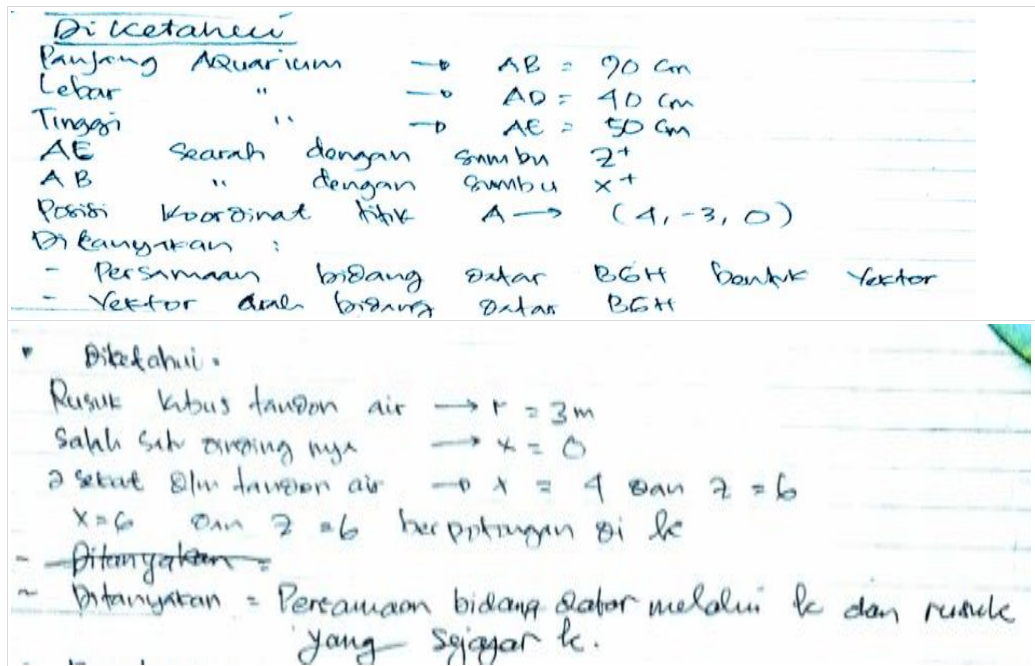 Diketahui
Panjang Aquarium → AB = 90 cm
Lebar " → AD = 40 cm
Tinggi " → AE = 50 cm
AE searah dengan sumbu z+
AB " dengan sumbu x+
Posisi Koordinat titik A → (4, -3, 0)
Ditanyakan :
- Persamaan bidang datar BGH bentuk Vektor
- Vektor arah bidang datar BGH
Diketahui.
Rusuk kubus tandon air → r = 3 m
Salah satu dinding nya → x = 0
2 sekat dlm tandon air → x = 4 dan z = 6
x = 6 dan z = 6 berpotongan di k
- Ditanyakan =
~ Ditanyakan = Persamaan bidang datar melalui k dan rusuk
yang sejajar k.